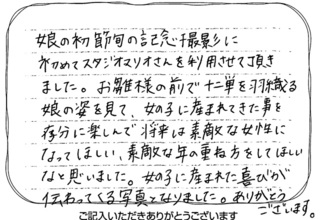 娘の初節句の記念撮影に
初めてスタジオマリオさんを利用させて頂き
ました。お雛様の前で十二単を羽織る
娘の姿を見て、女の子に産まれてきた事を
存分に楽しんで将来は素敵な女性に
なってほしい、素敵な年の重ね方をしてほしい
なと思いました。女の子に産まれた喜びが
伝わってくる写真となりました。ありがとう
ございます。
ご記入いただきありがとうございます